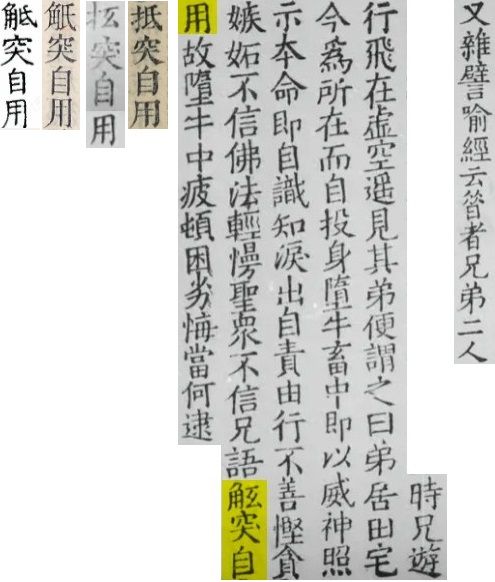 又雜譬喻經云昔者兄弟二人
時兄遊
行飛在虛空遥見其弟便謂之曰弟居田宅
今爲所在而自投身墮牛畜中即以威神照
示夲命即自識知淚出自責由行不善慳貪
嫉妬不信佛法輕慢聖衆不信兄語突自
用故墮牛中疲頓困劣悔當何逮
抵突自用
突自用
觝突自用
觝突自用